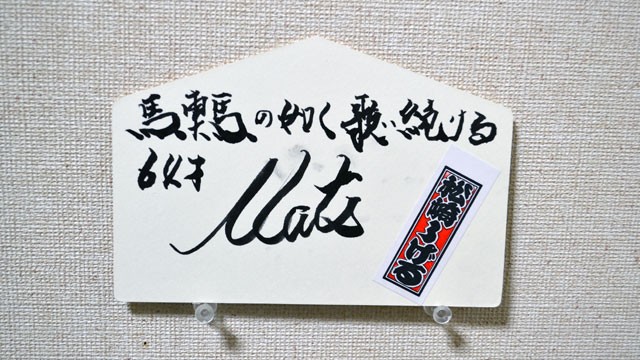 馬車馬の如く歌い続ける
64才
Matz
松崎しげる